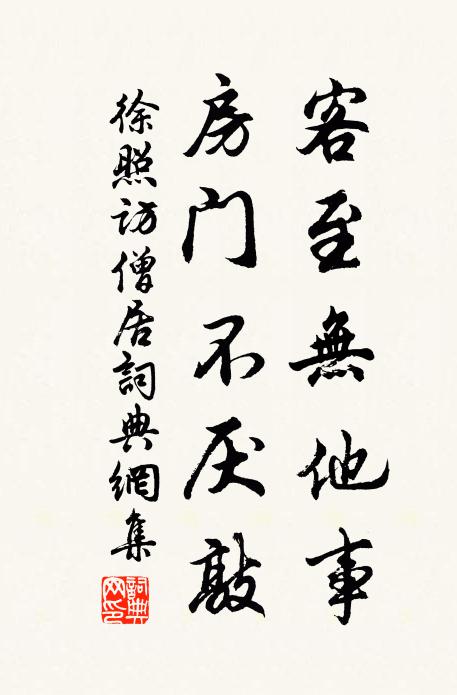 客至無他事
房门不厌敲
徐照访僧居詞典網集
詞典网印